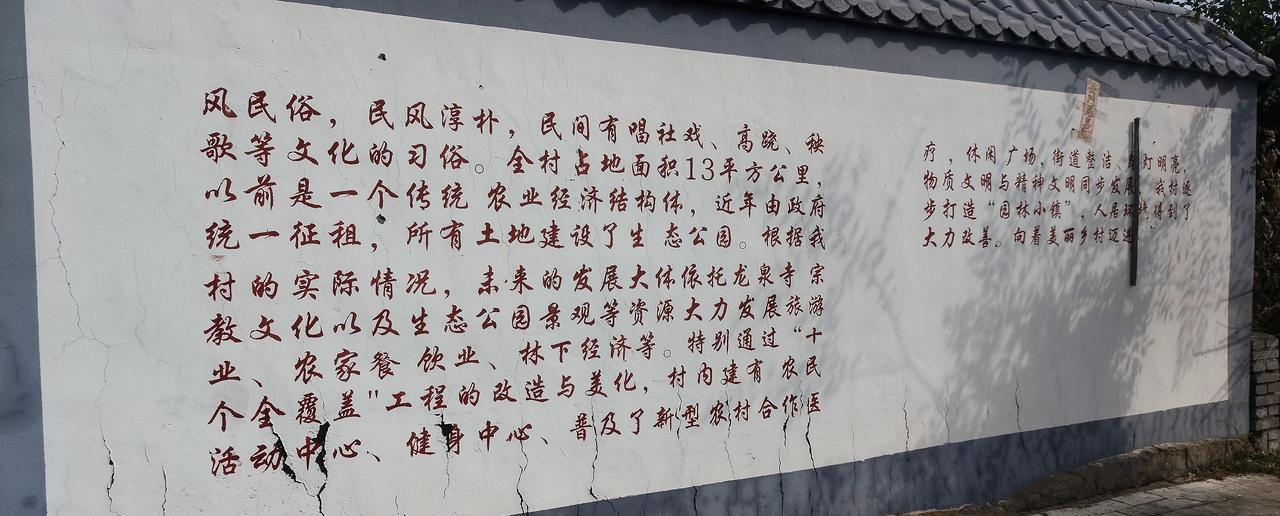 风民俗，民风淳朴，民间有唱社戏、高跷、秧
歌等文化的习俗。全村占地面积13平方公里，
以前是一个传统 农业经济结构体，近年由政府
统一征租，所有土地建设了生态公园。根据我
村的实际情况，未来的发展大体依托龙泉寺宗
教文化以及生态公园景观等资源大力发展旅游
业、农家餐饮业、林下经济等。特别通过“十
个全覆盖"工程的改造与美化，村内建有农民
活动中心、健身中心、普及了新型农村合作医
疗，休闲广场，街道整洁 灯明亮，
物质文明与精神文明同步发展，我村逐
步打造“园林小镇”，人居环境得到了
大力改善。向着美丽乡村迈进